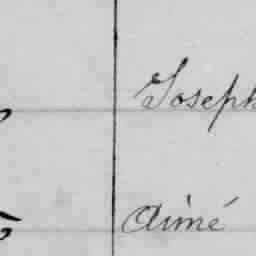 Joseph
Aimé